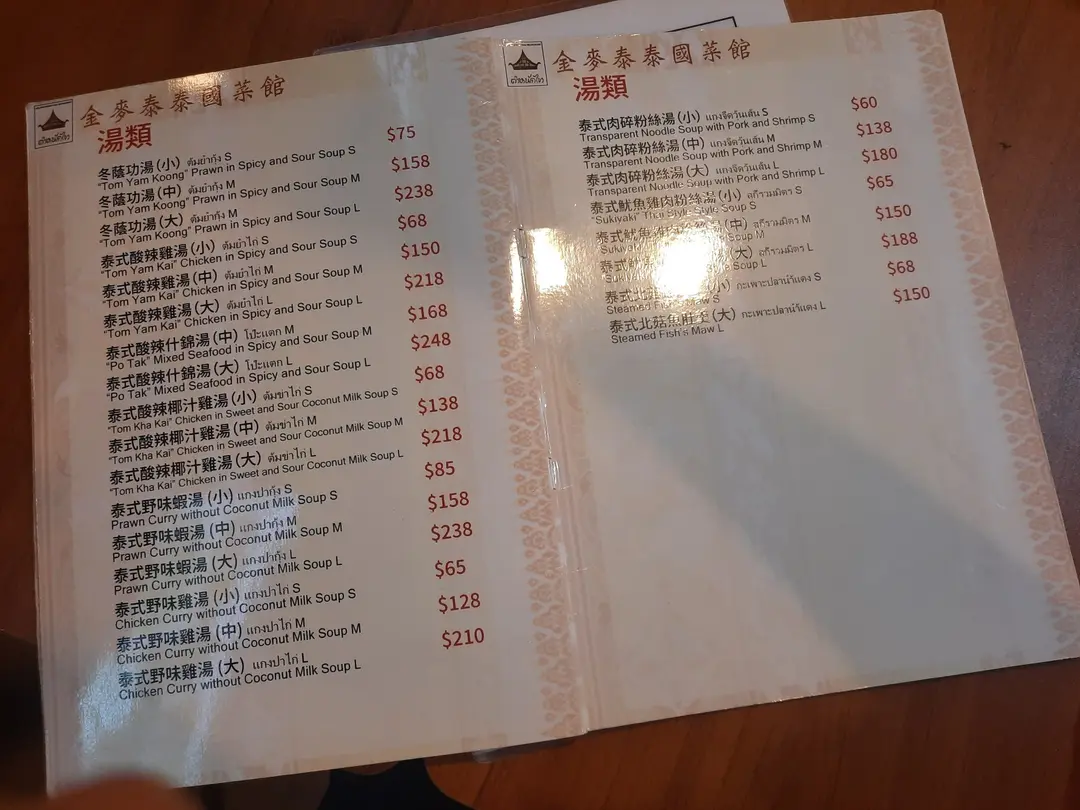 金麥泰泰國菜館
湯類
冬蔭功湯(小) ต้มยำกุ้ง S
"Tom Yam Koong" Prawn in Spicy and Sour Soup S
$75
冬蔭功湯(中) ต้มยำกุ้ง M
"Tom Yam Koong" Prawn in Spicy and Sour Soup M
$158
冬蔭功湯(大) ต้มยำกุ้ง M
"Tom Yam Koong" Prawn in Spicy and Sour Soup L
$238
泰式酸辣雞湯(小) ต้มยำไก่ S
"Tom Yam Kai" Chicken in Spicy and Sour Soup S
$68
泰式酸辣雞湯(中) ต้มยำไก่ M
"Tom Yam Kai" Chicken in Spicy and Sour Soup M
$150
泰式酸辣雞湯(大) ต้มยำไก่ L
"Tom Yam Kai" Chicken in Spicy and Sour Soup L
$218
泰式酸辣什錦湯(中) โป๊ะแตก M
"Po Tak" Mixed Seafood in Spicy and Sour Soup M
$168
泰式酸辣什錦湯(大) โป๊ะแตก L
"Po Tak" Mixed Seafood in Spicy and Sour Soup L
$248
泰式酸辣椰汁雞湯(小) ต้มข่าไก่ S
"Tom Kha Kai" Chicken in Sweet and Sour Coconut Milk Soup S
$68
泰式酸辣椰汁雞湯(中) ต้มข่าไก่ M
"Tom Kha Kai" Chicken in Sweet and Sour Coconut Milk Soup M
$138
泰式酸辣椰汁雞湯(大) ต้มข่าไก่ L
"Tom Kha Kai" Chicken in Sweet and Sour Coconut Milk Soup L
$218
泰式野味蝦湯(小) แกงป่ากุ้ง S
Prawn Curry without Coconut Milk Soup S
$85
泰式野味蝦湯(中) แกงป่ากุ้ง M
Prawn Curry without Coconut Milk Soup M
$158
泰式野味蝦湯(大) แกงป่ากุ้ง L
Prawn Curry without Coconut Milk Soup L
$238
泰式野味雞湯(小) แกงป่าไก่ S
Chicken Curry without Coconut Milk Soup S
$65
泰式野味雞湯(中) แกงป่าไก่ M
Chicken Curry without Coconut Milk Soup M
$128
泰式野味雞湯(大) แกงป่าไก่ L
Chicken Curry without Coconut Milk Soup L
$210
金麥泰泰國菜館
湯類
泰式肉碎粉絲湯(小) แกงจืดวันเส้น S
Transparent Noodle Soup with Pork and Shrimp S
$60
泰式肉碎粉絲湯(中) แกงจืดวันเส้น M
Transparent Noodle Soup with Pork and Shrimp M
$138
泰式肉碎粉絲湯(大) แกงจืดวันเส้น L
Transparent Noodle Soup with Pork and Shrimp L
$180
泰式魷魚雞肉粉絲湯(小) สุกี้รวมมิตร S
"Sukiyaki" Thai Style Style Soup S
$65
泰式魷魚 (中) สุกี้รวมมิตร M
Soup M
$150
泰式 大) สุกี้รวมมิตร L
Soup L
$188
泰式北菇 小) กะเพาะปลาน้ำแดง S
Steamed Fish's Maw S
$68
泰式北菇魚肚 (大) กะเพาะปลาน้ำแดง L
Steamed Fish's Maw L
$150